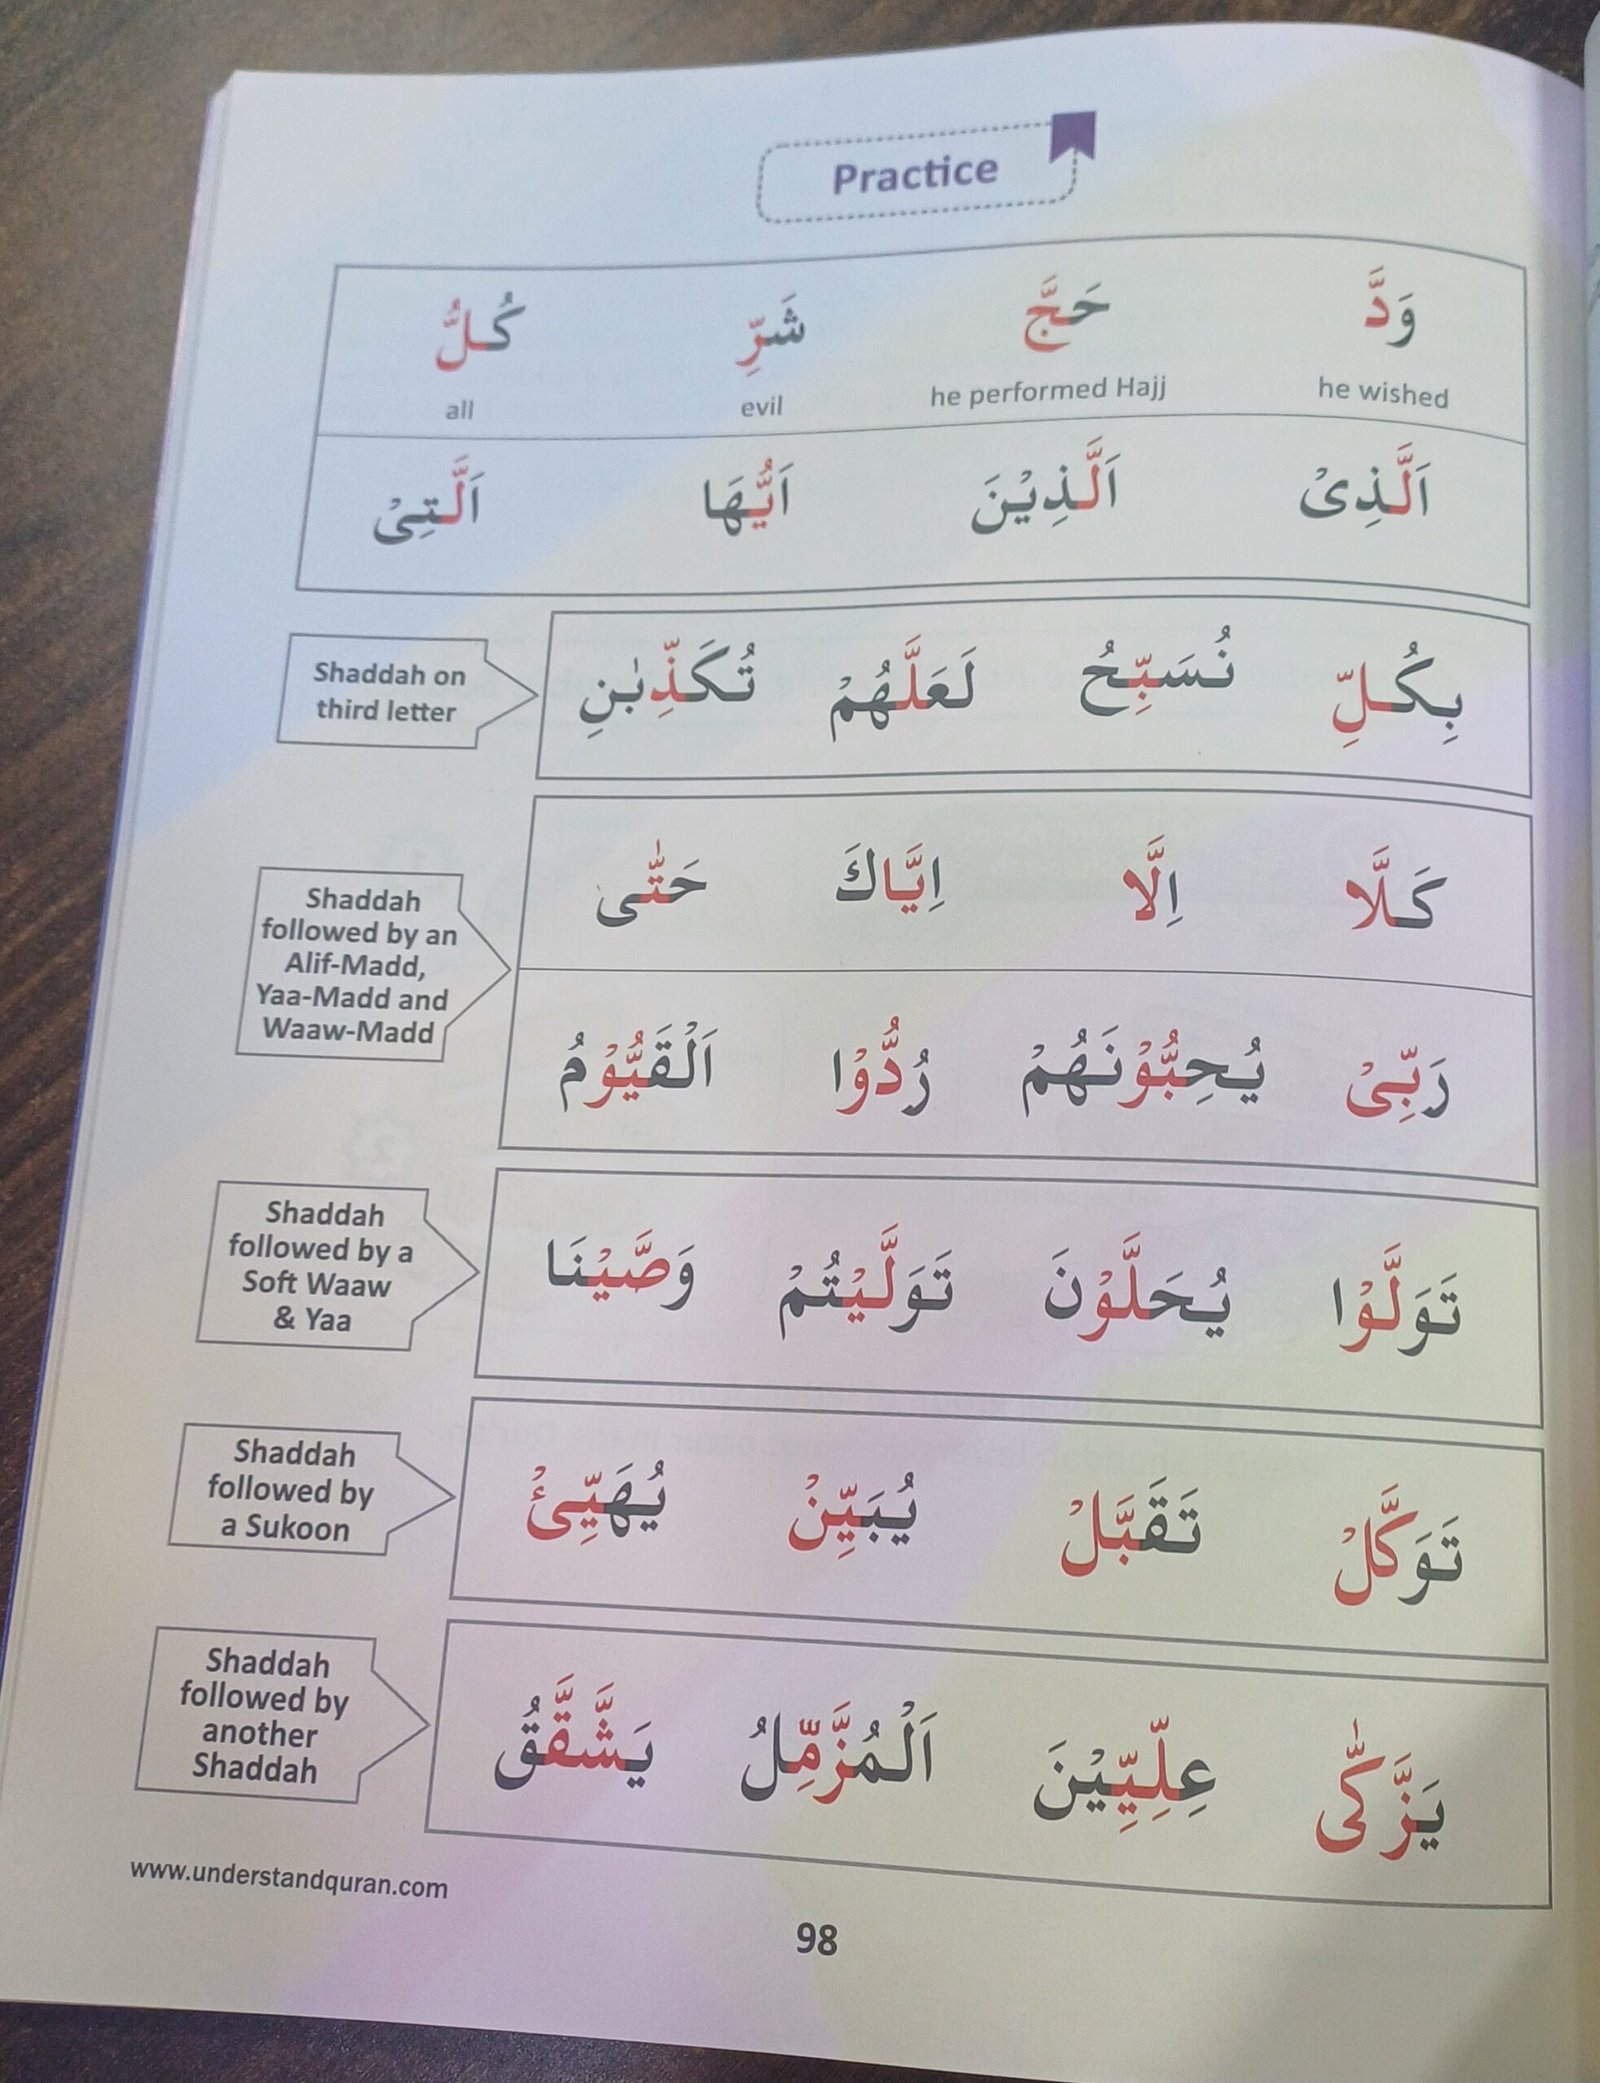 Practice
وَدَّ حَجَّ شَرِّ كُلُّ
he wished he performed Hajj evil all
اَلَّذِىْ اَلَّذِيْنَ اَيُّهَا اَلَّتِىْ
Shaddah on
third letter
بِكُلِّ نُسَبِّحُ لَعَلَّهُمْ تُكَذِّبٰنِ
Shaddah
followed by an
Alif-Madd,
Yaa-Madd and
Waaw-Madd
كَلَّا اِلَّا اِيَّاكَ حَتّٰى
رَبِّىْ يُحِبُّوْنَهُمْ رُدُّوْا اَلْقَيُّوْمُ
Shaddah
followed by a
Soft Waaw
& Yaa
تَوَلَّوْا يُحَلَّوْنَ تَوَلَّيْتُمْ وَصَّيْنَا
Shaddah
followed by
a Sukoon
تَوَكَّلْ تَقَبَّلْ يُبَيِّنْ يُهَيِّئْ
Shaddah
followed by
another
Shaddah
يَزَّكّٰى عِلِّيِّيْنَ اَلْمُزَّمِّلُ يَشَّقَّقُ
www.understandquran.com
98